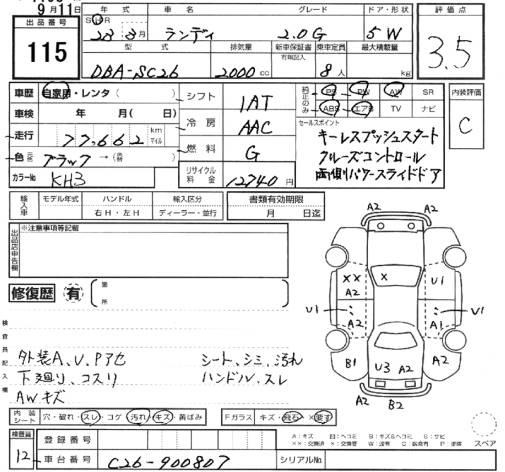 9月11日
出品番号
115
年式
車名
グレード
ドア・形状
評価点
23年3月
ランディ
2.0G
5W
3.5
型式
排気量
新車保証書
有無記入
乗車定員
最大積載量
DBA-SC26
2000cc
8人
kg
車歴
自家用・レンタ（ ）
シフト
1AT
純正のみ
PS
PW
AW
SR
内装評価
車検
年 月(日)
冷房
AAC
ABS
エアB
TV
ナビ
C
走行
77,662
km
マイル
燃料
G
セールスポイント
キーレスプッシュスタート
クルーズコントロール
両側パワースライドドア
色
ブラック→（ ）
カラーNo
KH3
リサイクル料金
12740円
輸入車
モデル年式
ハンドル
右H・左H
輸入区分
ディーラー・並行
書類有効期限
月 日迄
出品店申告欄
※注意事項等記載
修復歴
有
箇所
検査員記入欄
外装A、U、Pアセ
下廻り、コスリ
AWキズ
シート、シミ、汚れ
ハンドル、スレ
A2
A2
A2
XX
A2
X
U1
U1
A2
A1
U1
B1
U3
A2
A2
A2
B2
内装シート
穴・破れ・スレ・コゲ・汚れ・キズ・黄ばみ
Fガラス
キズ・飛石・X要す
検査員
12
登録番号
車台番号
C26-900807
シリアルNo
スペア